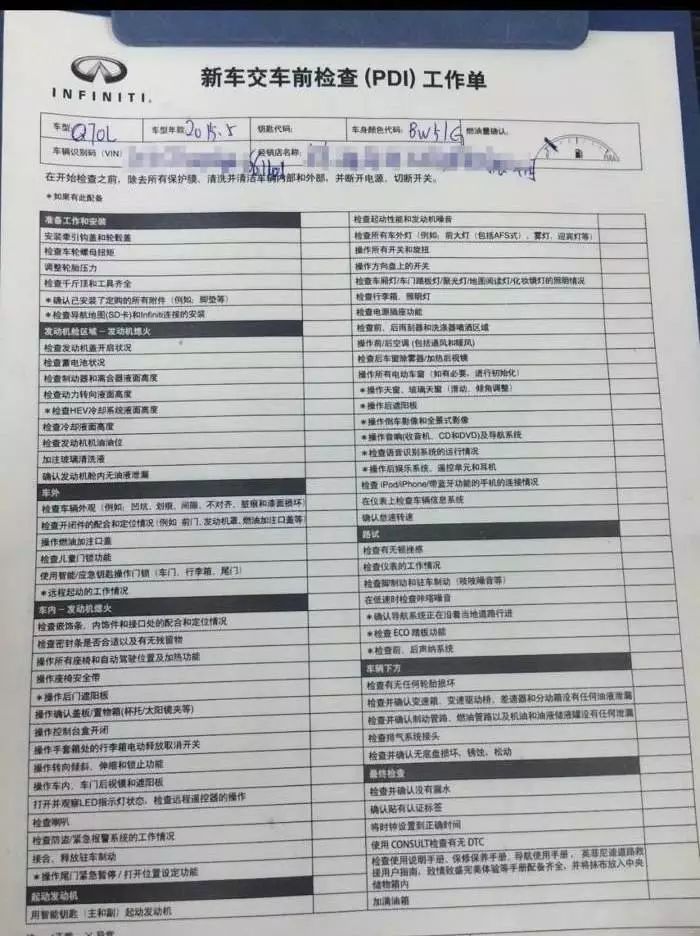 INFINITI
新车交车前检查(PDI)工作单
车型: Q70L
车型年款: 2015.5
钥匙代码:
车身颜色代码: BW51G
燃油量确认:
车辆识别码(VIN)
经销店名称:
FULL
在开始检查之前,除去所有保护膜、清洗并清洁车辆内部和外部,并断开电源、切断开关。
*如果有此配备
准备工作和安装
安装牵引钩盖和轮毂盖
检查车轮螺母扭矩
调整轮胎压力
检查千斤顶和工具齐全
*确认已安装了定购的所有附件(例如:脚垫等)
*检查导航地图(SD卡)和Infiniti连接的安装
发动机舱区域-发动机熄火
检查发动机盖开启状况
检查蓄电池状况
检查制动器和离合器液面高度
检查动力转向液面高度
*检查HEV冷却系统液面高度
检查冷却液面高度
检查发动机机油油位
加注玻璃清洗液
确认发动机舱内无油液泄漏
车外
检查车辆外观(例如:凹坑、划痕、间隙、不对齐、脏痕和漆面损坏)
检查开闭件的配合和定位情况(例如 前门、发动机罩、燃油加注口盖等)
操作燃油加注口盖
检查儿童门锁功能
使用智能/应急钥匙操作门锁(车门、行李箱、尾门)
*远程起动的工作情况
车内-发动机熄火
检查嵌饰条、内饰件和接口处的配合和定位情况
检查密封条是否合适以及有无残留物
操作所有座椅和自动驾驶位置及加热功能
操作座椅安全带
*操作后门遮阳板
操作确认盖板/置物箱(杯托/太阳镜夹等)
操作控制台盒开闭
操作手套箱处的行李箱电动释放取消开关
操作转向倾斜、伸缩和锁止功能
操作车内、车门后视镜和遮阳板
打开并观察LED指示灯状态,检查远程遥控器的操作
检查喇叭
检查防盗/紧急报警系统的工作情况
接合、释放驻车制动
*操作尾门紧急暂停/打开位置设定功能
起动发动机
用智能钥匙(主和副)起动发动机
检查起动性能和发动机噪音
检查所有车外灯(例如:前大灯(包括AFS式)、雾灯、迎宾灯等)
操作所有开关和旋扭
操作方向盘上的开关
检查车厢灯/车门踏板灯/聚光灯/地图阅读灯/化妆镜灯的照明情况
检查行李箱、照明灯
检查电源插座功能
检查前、后雨刮器和洗涤器喷洒区域
操作前/后空调(包括通风和暖风)
检查后车窗除雾器/加热后视镜
操作所有电动车窗(如有必要,进行初始化)
*操作天窗、玻璃天窗(滑动、倾角调整)
*操作后遮阳板
*操作倒车影像和全景式影像
*操作音响(收音机、CD和DVD)及导航系统
*检查语音识别系统的运行情况
*操作后娱乐系统、遥控单元和耳机
检查 iPod/iPhone/带蓝牙功能的手机的连接情况
在仪表上检查车辆信息系统
确认怠速转速
路试
检查有无顿挫感
检查仪表的工作情况
检查脚制动和驻车制动(吱吱噪音等)
在低速时检查咔嗒噪音
*确认导航系统正在沿着当地道路行进
*检查 ECO 踏板功能
*检查前、后声纳系统
车辆下方
检查有无任何轮胎损坏
检查并确认变速箱、变速驱动桥、差速器和分动箱没有任何油液泄漏
检查并确认制动管路、燃油管路以及机油和油液储液罐没有任何泄漏
检查排气系统接头
检查并确认无底盘损坏、锈蚀、松动
最终检查
检查并确认没有漏水
确认贴有认证标签
将时钟设置到正确时间
使用 CONSULT检查有无 DTC
检查使用说明手册、保修保养手册、导航使用手册、英菲尼迪道路救
援用户指南,致情致盛完美体验等手册配备齐全,并将抹布放入中央
储物箱内
加满油箱